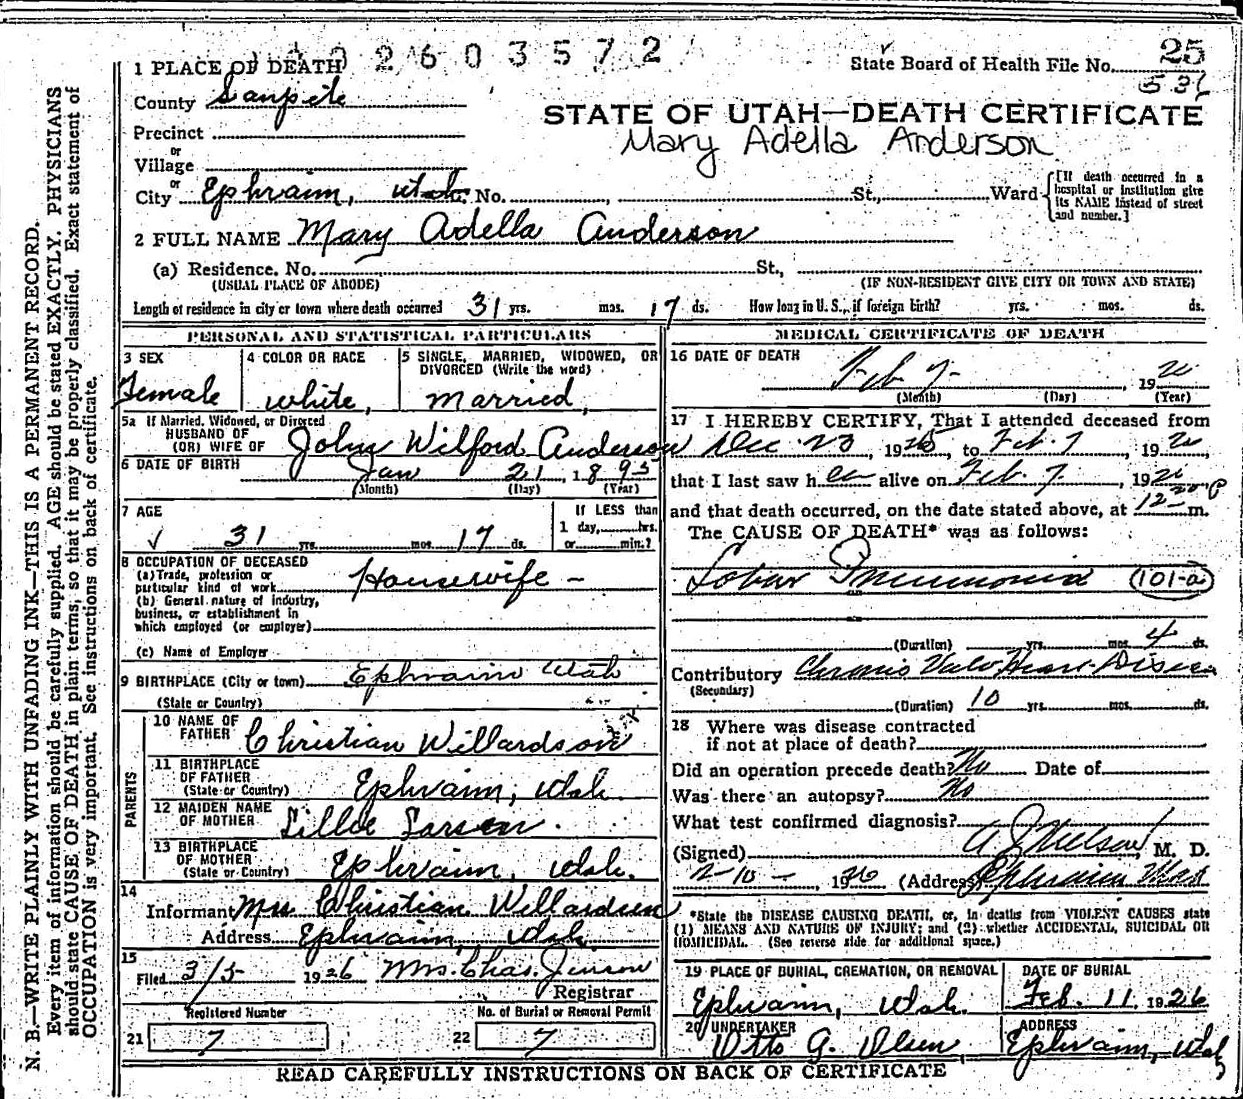 1 PLACE OF DEATH 2603572
State Board of Health File No. 25
536
County Sanpete
STATE OF UTAH—DEATH CERTIFICATE
Precinct
Mary Adella Anderson
or
Village
or
City Ephraim, Utah. No. St., Ward
[If death occurred in a hospital or institution give its NAME instead of street and number.]
2 FULL NAME Mary Adella Anderson
(a) Residence. No. St.,
(USUAL PLACE OF ABODE) (IF NON-RESIDENT GIVE CITY OR TOWN AND STATE)
Length of residence in city or town where death occurred 31 yrs. mos. 17 ds. How long in U. S., if foreign birth? yrs. mos. ds.
PERSONAL AND STATISTICAL PARTICULARS
3 SEX
Female
4 COLOR OR RACE
white,
5 SINGLE, MARRIED, WIDOWED, OR DIVORCED (Write the word)
Married,
5a If Married, Widowed, or Divorced
HUSBAND OF
(OR) WIFE OF John Wilford Anderson
6 DATE OF BIRTH Jan 21, 1895
(Month) (Day) (Year)
7 AGE
31 yrs. mos. 17 ds.
If LESS than
1 day, hrs.
or min.?
8 OCCUPATION OF DECEASED
(a) Trade, profession or
particular kind of work Housewife -
(b) General nature of industry,
business, or establishment in
which employed (or employer)
(c) Name of Employer
9 BIRTHPLACE (City or town) Ephraim Utah
(State or Country)
PARENTS
10 NAME OF
FATHER Christian Willardson
11 BIRTHPLACE
OF FATHER
(State or Country) Ephraim, Utah.
12 MAIDEN NAME
OF MOTHER Lillie Larsen.
13 BIRTHPLACE
OF MOTHER
(State or Country) Ephraim, Utah.
14
Informant Mrs Christian Willardson
Address Ephraim, Utah
15
Filed 3/5 1926 Mrs. Chas. Jenson
Registrar
Registered Number
21 7
No. of Burial or Removal Permit
22 7
MEDICAL CERTIFICATE OF DEATH
16 DATE OF DEATH
Feb 7- , 1926
(Month) (Day) (Year)
17 I HEREBY CERTIFY, That I attended deceased from
Dec 23, 1925, to Feb. 7, 1926,
that I last saw her alive on Feb. 7, 1926,
and that death occurred, on the date stated above, at 12 P m.
The CAUSE OF DEATH* was as follows:
Lobar Pneumonia (101-a)
(Duration) yrs. mos. 4 ds.
Contributory Chronic Valv. Heart Disease
(Secondary)
(Duration) 10 yrs. mos. ds.
18 Where was disease contracted
if not at place of death?
Did an operation precede death? No Date of
Was there an autopsy? No
What test confirmed diagnosis?
(Signed) A J Nielson, M. D.
2-10-, 1926 (Address) Ephraim Utah
*State the DISEASE CAUSING DEATH, or, in deaths from VIOLENT CAUSES state
(1) MEANS AND NATURE OF INJURY; and (2) whether ACCIDENTAL, SUICIDAL OR
HOMICIDAL. (See reverse side for additional space.)
19 PLACE OF BURIAL, CREMATION, OR REMOVAL
Ephraim, Utah.
DATE OF BURIAL
Feb. 11, 1926
20 UNDERTAKER
Otto G. Olsen,
ADDRESS
Ephraim, Utah
READ CAREFULLY INSTRUCTIONS ON BACK OF CERTIFICATE
N. B.—WRITE PLAINLY WITH UNFADING INK—THIS IS A PERMANENT RECORD.
Every item of information should be carefully supplied. AGE should be stated EXACTLY. PHYSICIANS
should state CAUSE OF DEATH in plain terms, so that it may be properly classified. Exact statement of
OCCUPATION is very important. See instructions on back of certificate.